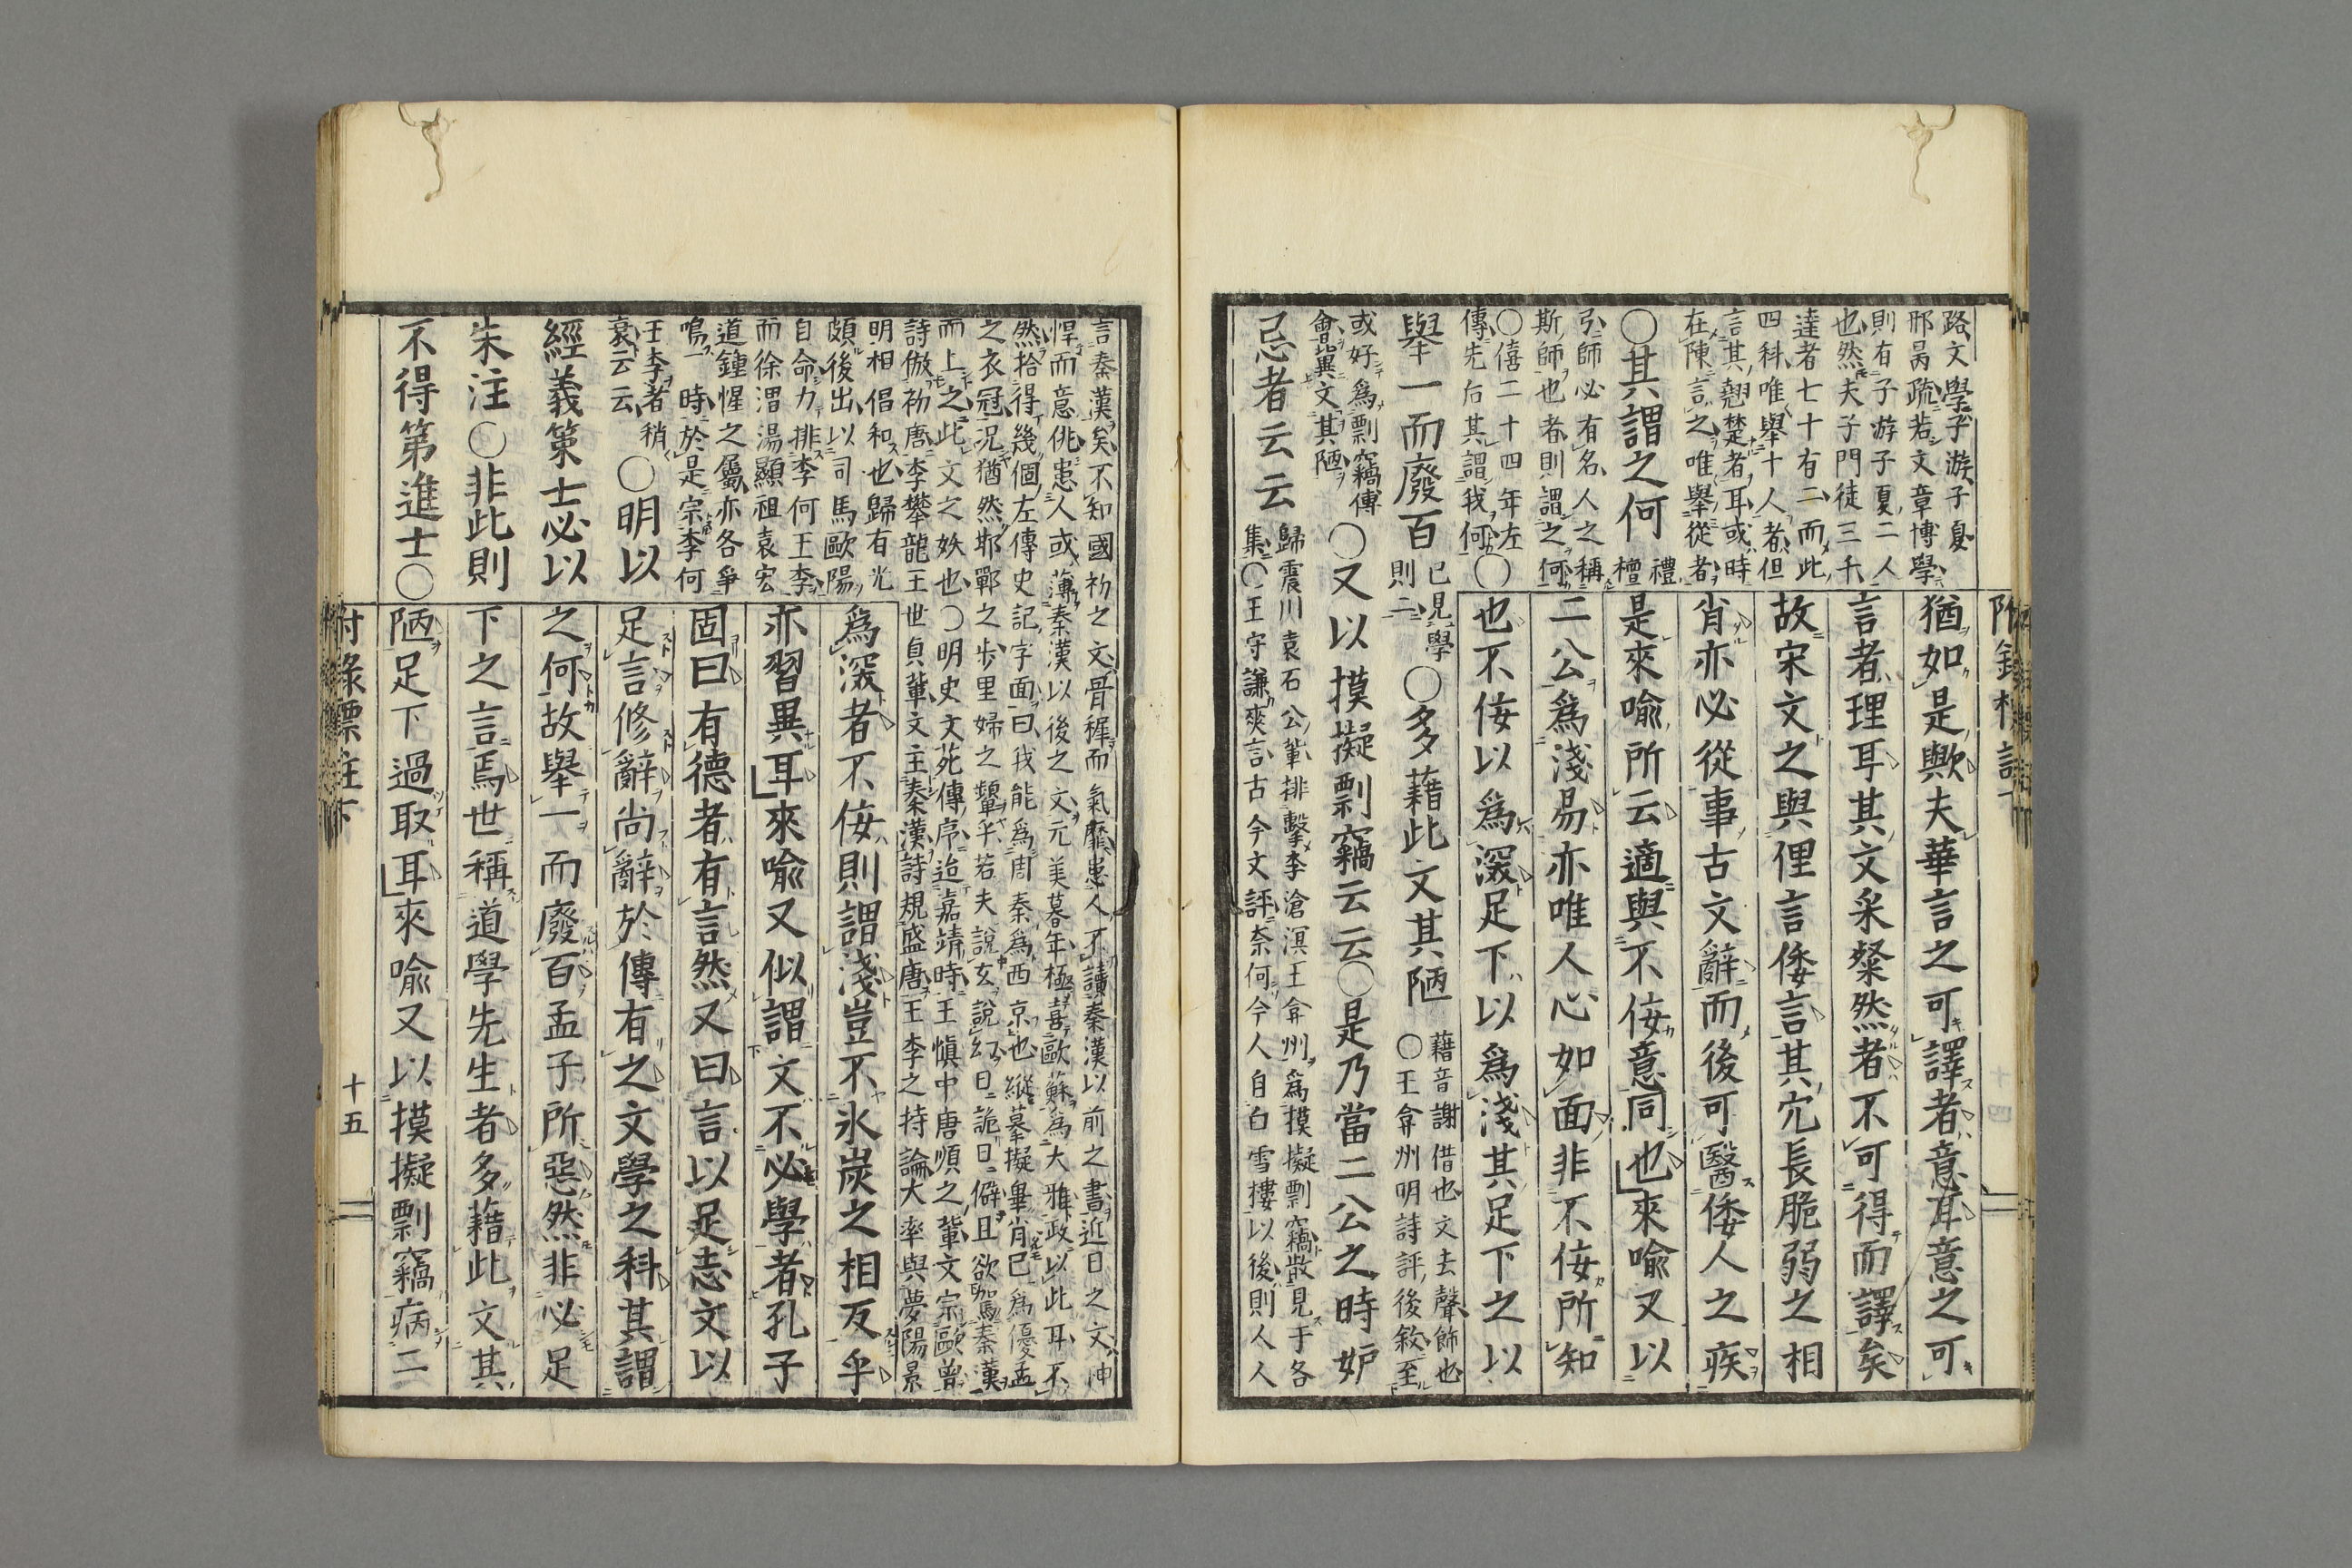 附録標註下
路文學子游子夏
邢昺疏若文章博學
則有子游子夏二人
也然夫子門徒三千
達者七十有二而此
四科唯舉十人者但
言其翹楚者耳或時
在陳言之唯舉從者
○其謂之何 禮檀
弓師必有名人之稱
斯師也者則謂之何
○僖二十四年左
傳先后其謂我何○
舉一而廢百 已見學則二 ○多藉此文其陋 藉音謝借也文去聲飾也○王弇州明詩評後敘至
或好爲剽竊傳會異文其陋 ○又以摸擬剽竊云云○是乃當二公之時妒
忌者云云 歸震川袁石公輩排擊李滄溟王弇州爲摸擬剽竊散見于各
集○王守謙爽言古今文評奈何今人自白雪摟以後則人人
猶如是歟夫華言之可譯者意耳意之可
言者理耳其文采粲然者不可得而譯矣
故宋文之與俚言倭言其冗長脆弱之相
肖亦必從事古文辭而後可醫倭人之疾
是來喩所云適與不侫意同也來喩又以
二公爲淺易亦唯人心如面非不侫所知
也不侫以爲深足下以爲淺其足下之以
言秦漢矣不知國初之文骨稺而氣靡患人不讀秦漢以前之書近日之文神
悍而意佻患人或薄秦漢以後之文元美暮年極喜歐蘇爲大雅政以此耳不
然拾得幾個左傳史記字面曰我能爲周秦爲西京也縱摹擬畢肖已爲優孟
之衣冠況猶然邯鄲之步里婦之顰乎若夫說玄說幻曰詭曰僻且欲駕秦漢
而上之此文之妖也○明史文苑傳序迨嘉靖時王愼中唐順之輩文宗歐曾
詩倣初唐李攀龍王世貞輩文主秦漢詩規盛唐王李之持論大率與夢陽景
明相倡和也歸有光
頗後出以司馬歐陽
自命力排李何王李
而徐渭湯顯祖袁宏
道鍾惺之屬亦各爭
鳴一時於是宗李何
王李者稍
衰云云 ○明以
經義策士必以
朱注○非此則
不得第進士○
爲深者不侫則謂淺豈不氷炭之相反乎
亦習異耳來喩又似謂文不必學者孔子
固曰有德者有言然又曰言以足志文以
足言修辭尚辭於傳有之文學之科其謂
之何故舉一而廢百孟子所惡然非必足
下之言焉世稱道學先生者多藉此文其
陋足下過取耳來喩又以摸擬剽竊病二
付録標註下
十五